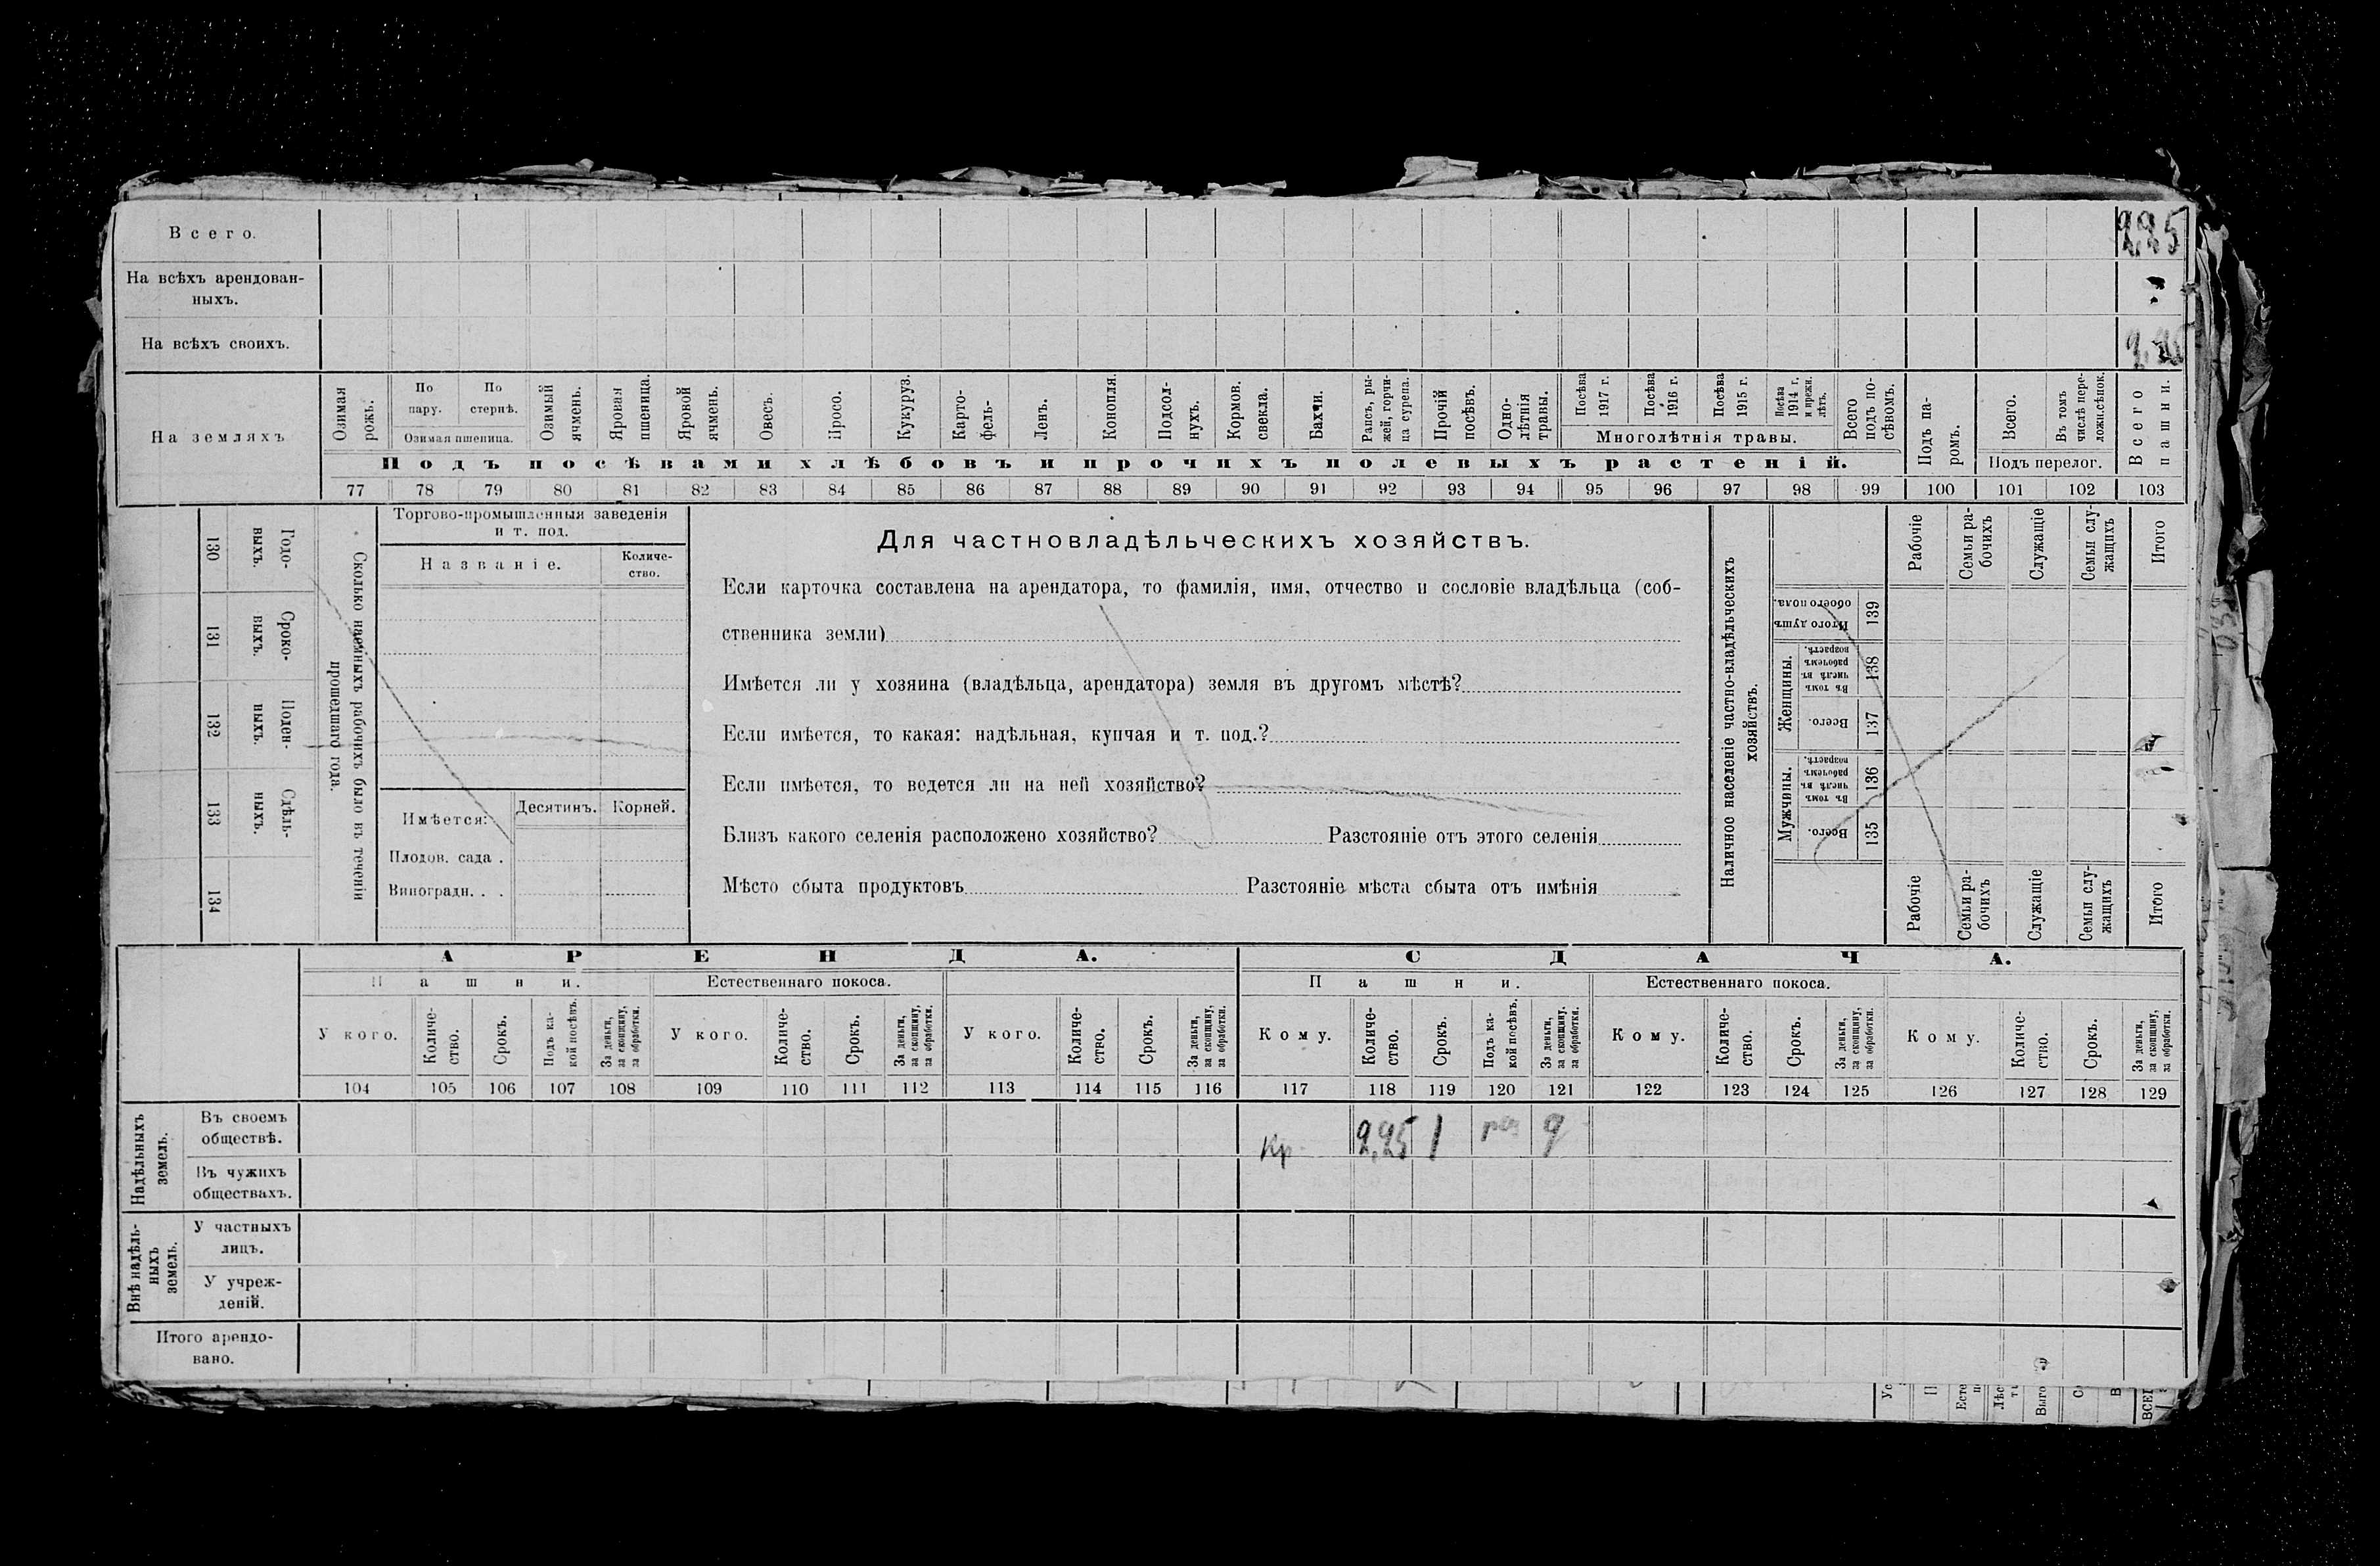 Всего.
2,25
На всѣхъ арендован-
ныхъ.
На всѣхъ своихъ.
2,25
На земляхъ
Озимая
рожь.
По
пару.
По
стернѣ.
Озимая пшеница.
Озимый
ячмень.
Яровая
пшеница.
Яровой
ячмень.
Овесъ.
Просо.
Кукуруз.
Карто-
фель-
Ленъ.
Конопля.
Подсол-
нухъ.
Кормов.
свекла.
Бахчи.
Рапсъ, ры-
жей, горчи-
ца сурепа.
Прочій
посѣвъ.
Одно-
лѣтнія
травы.
Посѣва
1917 г.
Посѣва
1916 г.
Посѣва
1915 г.
Посѣва
1914 г.
и прежн.
лѣтъ.
Многолѣтнія травы.
Всего
подъ по-
сѣвомъ.
Подъ па-
ромъ.
Всего.
Въ томъ
числѣ пере-
ложн.сѣнок.
Подъ перелог.
Всего
пашни.
Подъ посѣвами хлѣбовъ и прочихъ полевыхъ растеній.
77 78 79 80 81 82 83 84 85 86 87 88 89 90 91 92 93 94 95 96 97 98 99 100 101 102 103
Годо-
выхъ.
130
Сроко-
выхъ.
131
Поден-
ныхъ.
132
Сдѣль-
ныхъ.
133
134
Сколько наемныхъ рабочихъ было въ теченіи
прошедшаго года.
Торгово-промышленныя заведенія
и т. под.
Названіе.
Количе-
ство.
Имѣется:
Десятинъ.
Корней.
Плодов. сада .
Виноградн. . .
Для частновладѣльческихъ хозяйствъ.
Если карточка составлена на арендатора, то фамилія, имя, отчество и сословіе владѣльца (соб-
ственника земли)
Имѣется ли у хозяина (владѣльца, арендатора) земля въ другомъ мѣстѣ?
Если имѣется, то какая: надѣльная, купчая и т. под.?
Если имѣется, то ведется ли на ней хозяйство?
Близъ какого селенія расположено хозяйство? Разстояніе отъ этого селенія
Мѣсто сбыта продуктовъ Разстояніе мѣста сбыта отъ имѣнія
Наличное населеніе частно-владѣльческихъ
хозяйствъ.
Рабочіе
Семьи ра-
бочихъ
Служащіе
Семьи слу-
жащихъ
Итого
Итого душъ
обоего пола.
139
Женщины.
Въ томъ
числѣ въ
рабочемъ
возрастѣ.
138
Всего.
137
Мужчины.
Въ томъ
числѣ въ
рабочемъ
возрастѣ.
136
Всего.
135
Рабочіе
Семьи ра-
бочихъ
Служащіе
Семьи слу-
жащихъ
Итого
АРЕНДА. СДАЧА.
Пашни. Естественнаго покоса. Пашни. Естественнаго покоса.
У кого.
Количе-
ство.
Срокъ.
Подъ ка-
кой посѣвъ.
За деньги,
за скопщину,
за обработки.
У кого.
Количе-
ство.
Срокъ.
За деньги,
за скопщину,
за обработки.
У кого.
Количе-
ство.
Срокъ.
За деньги,
за скопщину,
за обработки.
Кому.
Количе-
ство.
Срокъ.
Подъ ка-
кой посѣвъ.
За деньги,
за скопщину.
за обработки.
Кому.
Количе-
ство.
Срокъ.
За деньги,
за скопщину,
за обработки.
Кому.
Количе-
ство.
Срокъ.
За деньги,
за скопщину,
за обработки.
104 105 106 107 108 109 110 111 112 113 114 115 116 117 118 119 120 121 122 123 124 125 126 127 128 129
Надѣльныхъ
земель.
Въ своемъ
обществѣ.
Кр 2,25 1 д
Въ чужихъ
обществахъ.
Внѣ надѣль-
ныхъ
земель.
У частныхъ
лицъ.
У учреж-
деній.
Итого арендо-
вано.